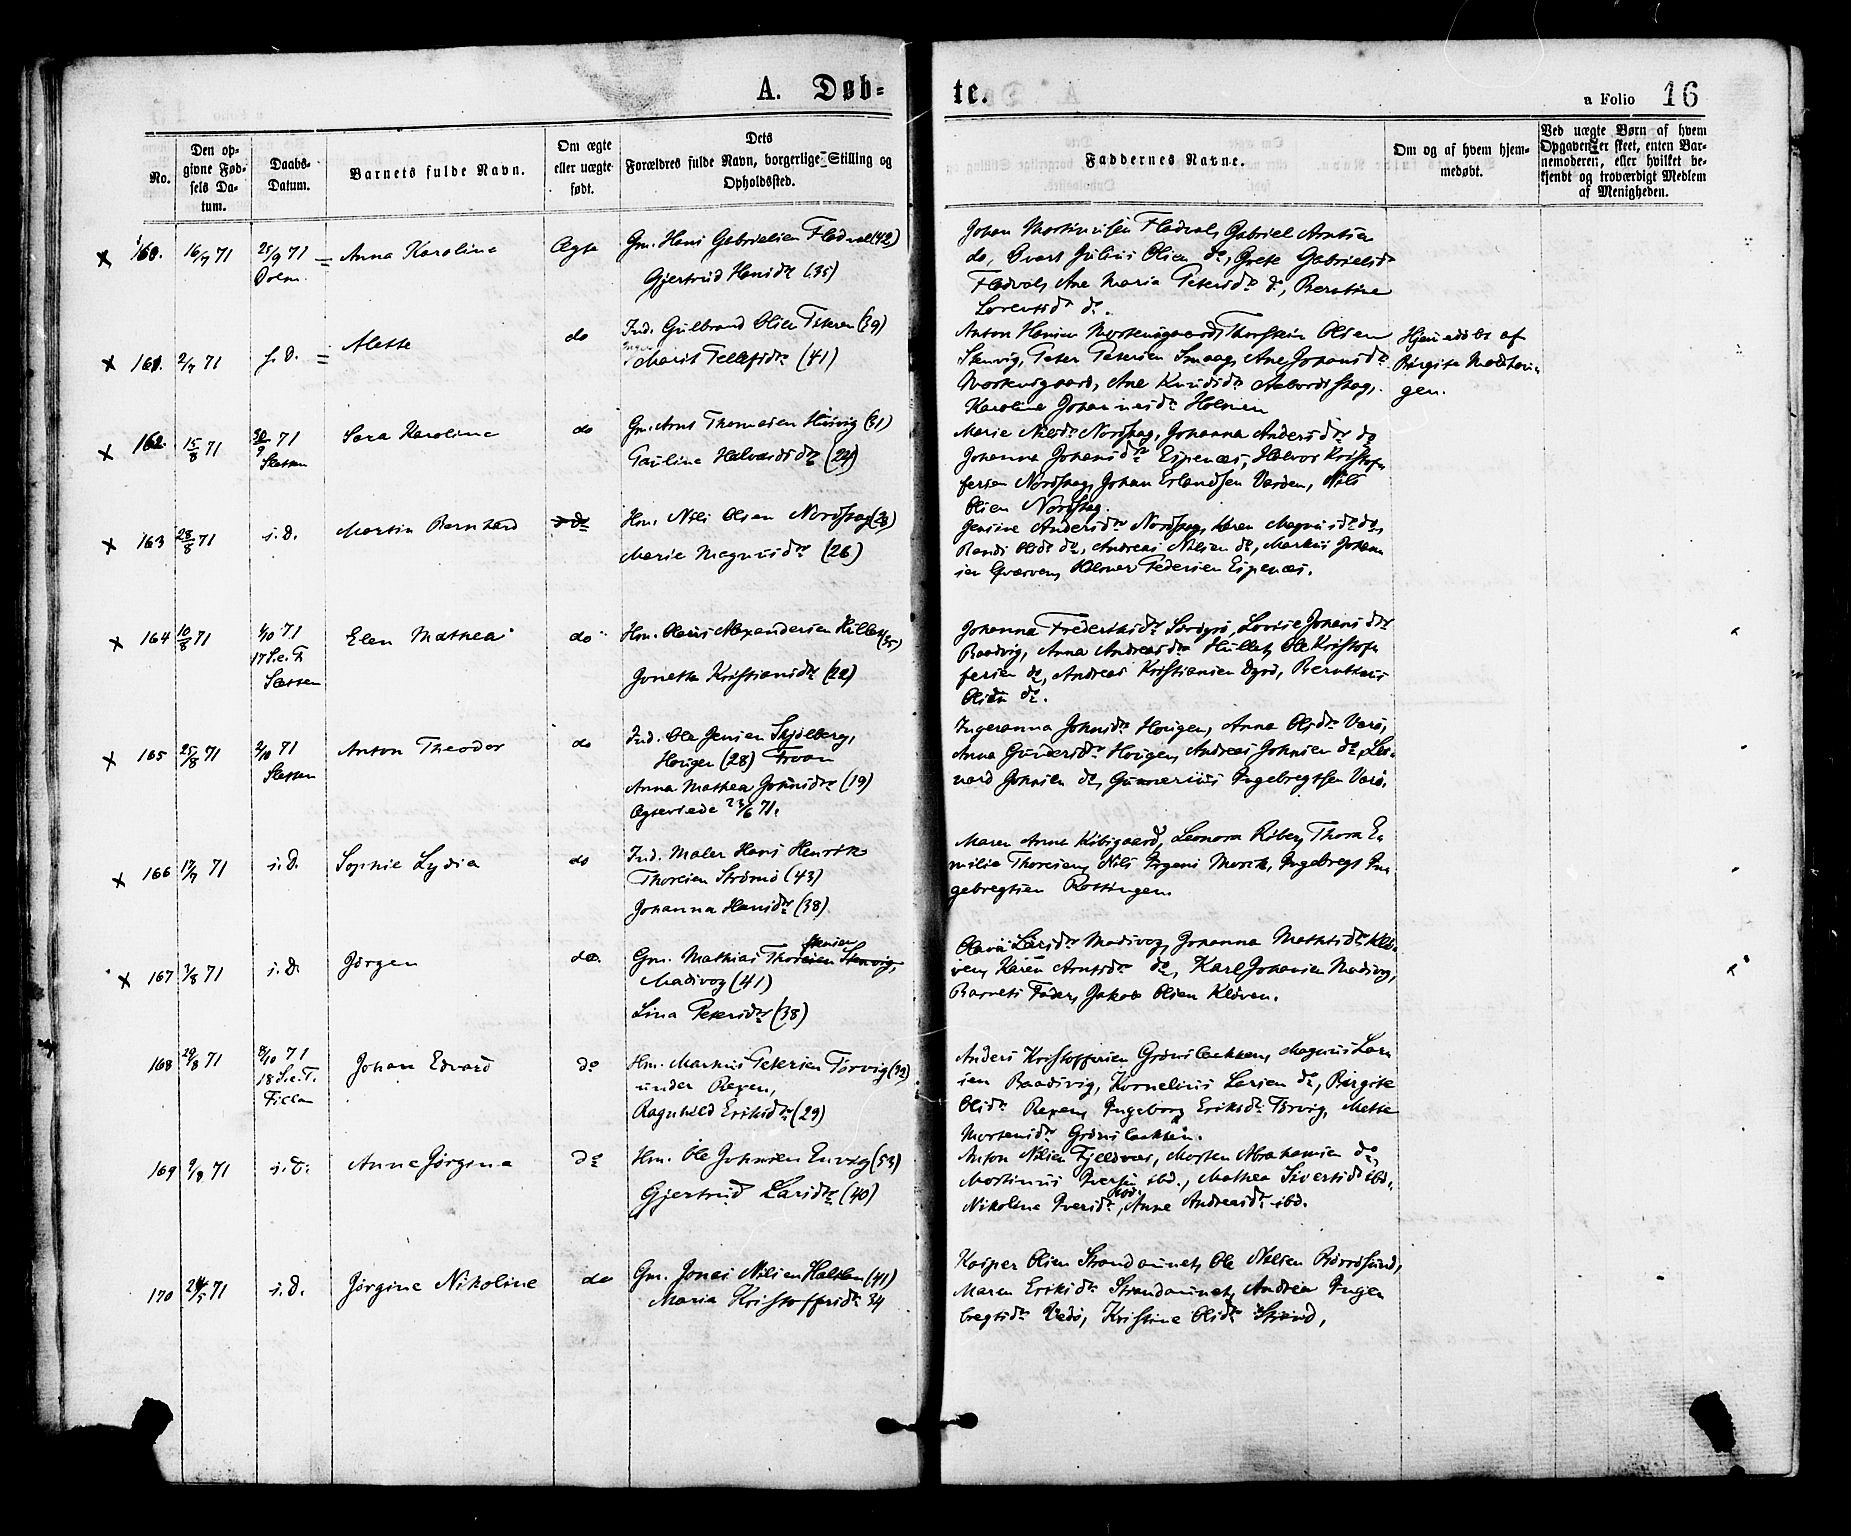 A. Døb=
te.
a Folio 16
No.
Den op-
givne Fød-
sels Da-
tum.
Daabs-
Datum.
Barnets fulde Navn.
Om ægte
eller uægte
født.
Dets
Forældres fulde Navn, borgerlige Stilling og
Opholdssted.
Faddernes Navne.
Om og af hvem hjem-
medøbt.
Ved uægte Børn af hvem
Opgaven er skeet, enten Bar-
nemoderen, eller hvilket be-
kjendt og troværdigt Medlem
af Menigheden.
160. 16/7 71 25/9 71 Anna Karoline Ægte Gm. Hans Gabrielsen Fladval (42)
Dolm.
Gjertrud Hansdtr (35)
Johan Martinusen Fladval, Gabriel Arntsen
do, Evart Julius Olsen do, Grete Gabrielsdr
Fladval, Ane Maria Petersdtr do, Berntine
Lorentsdtr do.
161. 2/7 71 s. D. Alette do Ind. Gulbrand Olsen (39)
Marit Tellefsdtr (41)
Anton Hansen Mortensgaard, Thorstein Olsen
Stenvig, Peter Petersen Smaage, Ane Johansdtr
Mortensgaard, Ane Knudsdtr
Karoline Johannesdtr Holmen
Hjemedøbt af
Birgite
gen.
162. 15/8 71 30/9 71 Sara Karoline do Gm. Arnt Thomesen Husvig (31)
Sletten
Pauline Halvardsdtr (24)
Marie Nilsdtr Nordskag, Johanna Andersdtr do
Johanna Johansdtr Espenæs, Halvor Kristof-
fersen Nordskag, Johan Erlandsen Varden, Nils
Olsen Nordskag.
163 28/8 71 s. D. Martin Bernhard do Hm. Nils Olsen Nordskag
Marie Magnusdtr (26)
Jensine Andersdtr Nordskag, Karen Magnusdtr do,
Randi Olsdtr do, Andreas Nilsen do, Markus Johan-
sen Kværven, Peder Pedersen Espenæs.
164 10/8 71 1/10 71 Elen Mathea do Hm. Olaus Alexandersen (35)
17 S. e. T.
Sletten
Jonette Kristiansdtr (22)
Johanna Frederiksdtr Lovise Johansdtr
Baadvig, Anna Andreasdtr Ole Kristof-
fersen do, Andreas Kristiansen Dyrø, Bernthus
Olsen do.
165 25/8 71 2/10 71 Anton Theodor do Ind. Ole Jensen Skjølberg,
Sletten
Hougen (28)
Anna Mathea Johnsdtr (19)
Ægteviede 23/6 71.
Ingeranna Johnsdtr Hougen, Anna Olsdtr Værø,
Anna Gundersdtr Hougen, Andreas Johnsen do, Le-
nard Johnsen do, Gunnerius Ingebregtsen Værø.
166 17/7 71 s. D. Sophie Lydia do Ind. Maler Hans Henrik
Thoresen Strømø (43)
Johanna Hansdtr (38)
Maren Anne Leonora Thora E-
milie Thoresen, Nils Jrgens Ingebregt In-
gebregtsen Rottingen.
167 7/8 71 s. D. Jørgen do. Gm. Mathias Thoresen Stenvig,
Madsvog (41)
Lina Petersdtr (38)
Larsdtr Madsvog, Johanna Mathisdtr Klø-
ven, Karen Arntsdtr do, Karl Johansen Madsvog,
Barnets Fader, Jakob Olsen Kløven.
168 29/8 71 8/10 71 Johan Edvard do Hm. Markus Petersen Tørvig (32)
18 S. e. T.
Fillan
under Reven,
Ragnhild Eriksdtr (29)
Anders Kristoffersen Magnus Lar-
sen Baadsvig, Kornelius Larsen do, Birgite
Olsdtr Reven, Ingeborg Eriksdtr Tørvig, Mette
Mortensdtr
169 9/8 71 s. D. Anne Jørgina do Hm. Ole Johnsen (53)
Gjertrud Larsdtr (40)
Anton Nilsen Fjeldvær, Morten Abrahamsen do,
Martinus Iversen ibd., Mathea Sivertsdtr ibd.
Nikoline Iversdtr ibd, Anne Andreasdtr ibd.
170 24/5 71 s. D. Jørgine Nikoline do Gm. Jonas Nilsen (41)
Maria Kristoffersdtr 34
Kasper Olsen Strandaunet, Ole Nilsen
Maren Eriksdtr Strandaunet, Andrea Inge-
bregtsdtr Vedø, Kristine Olsdtr Strand,